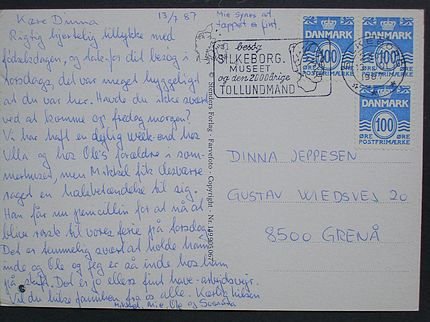 13/7 87
Kære Dinna
Rigtig hjertelig tillykke med
fødselsdagen, og tak for det besøg i
torsdags, det var meget hyggeligt
at du var her. Havde du ikke svært
ved at komme op fredag morgen?
Vi har haft en dejlig week-end hos
Ulla og hos Ole's forældre i som-
merhuset, men Mikkel fik desværre
noget en halsbetændelse til sig.
Han får nu penicillin for at nå at
blive rask til vores ferie på torsdag.
Det er temmelig svært at holde ham
inde og Ole og jeg er så inde hos ham
på skift. Det er jo ellers fint have-arbejdsvejr.
Vil du hilse familien fra os alle. Kærlig hilsen
Mie, Ole og
Mie synes at
tappet er fint.
besøg
SILKEBORG
MUSEET
og den 2000 årige
TOLLUNDMAND
DANMARK
200
ØRE
DANMARK
100
ØRE
POSTFRIMÆRKE
DANMARK
100
ØRE
POSTFRIMÆRKE
DINNA JEPPESEN
GUSTAV WIEDSVEJ 20
8500 GRENÅ